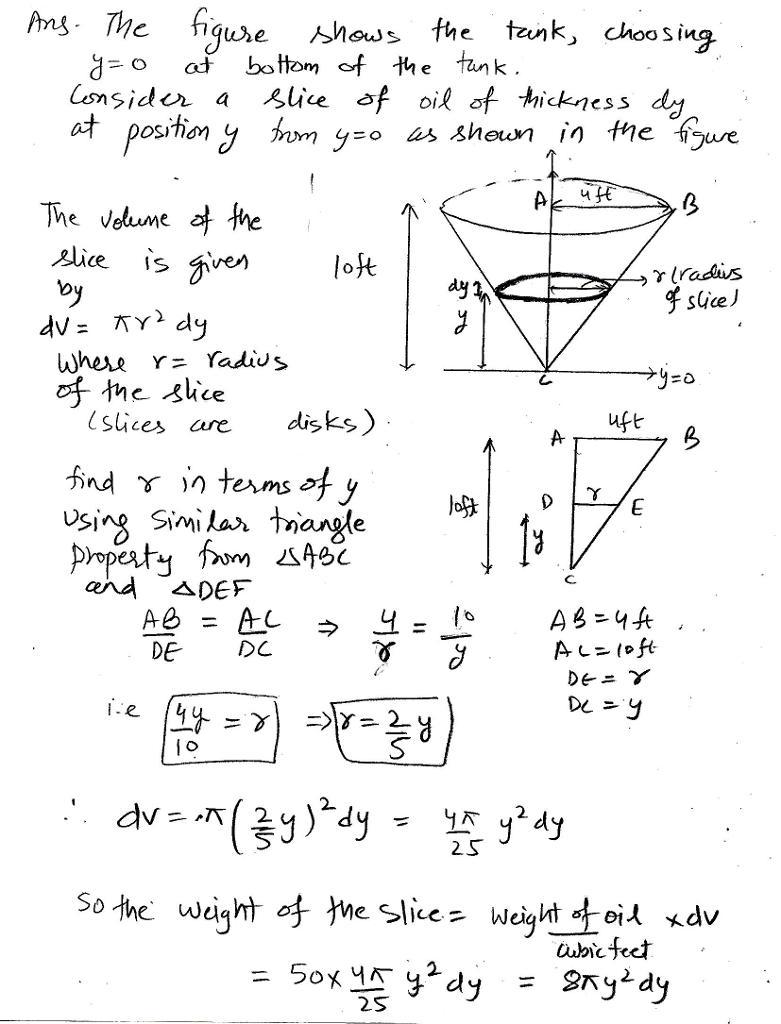 Ans. The figure shows the tank, choosing
y=0 at bottom of the tank.
Consider a slice of oil of thickness dy
at position y from y=0 as shown in the figure
The volume of the
slice is given
by
dv = πr² dy
where r = radius
of the slice
(slices are disks)
10ft
A
4ft
B
dy
y
r (radius
of slice)
C
y=0
find r in terms of y
using similar triangle
property from △ABC
and △DEF
4ft
A
B
10ft
D
r
E
y
C
AB/DE = AC/DC ⇒ 4/r = 10/y
AB = 4 ft
AC = 10ft
DE = r
DC = y
i.e 4y/10 = r ⇒ r = 2/5 y
∴ dv = π(2/5 y)² dy = 4π/25 y² dy
So the weight of the slice = weight of oil/cubic feet x dv
= 50x 4π/25 y² dy = 8πy² dy